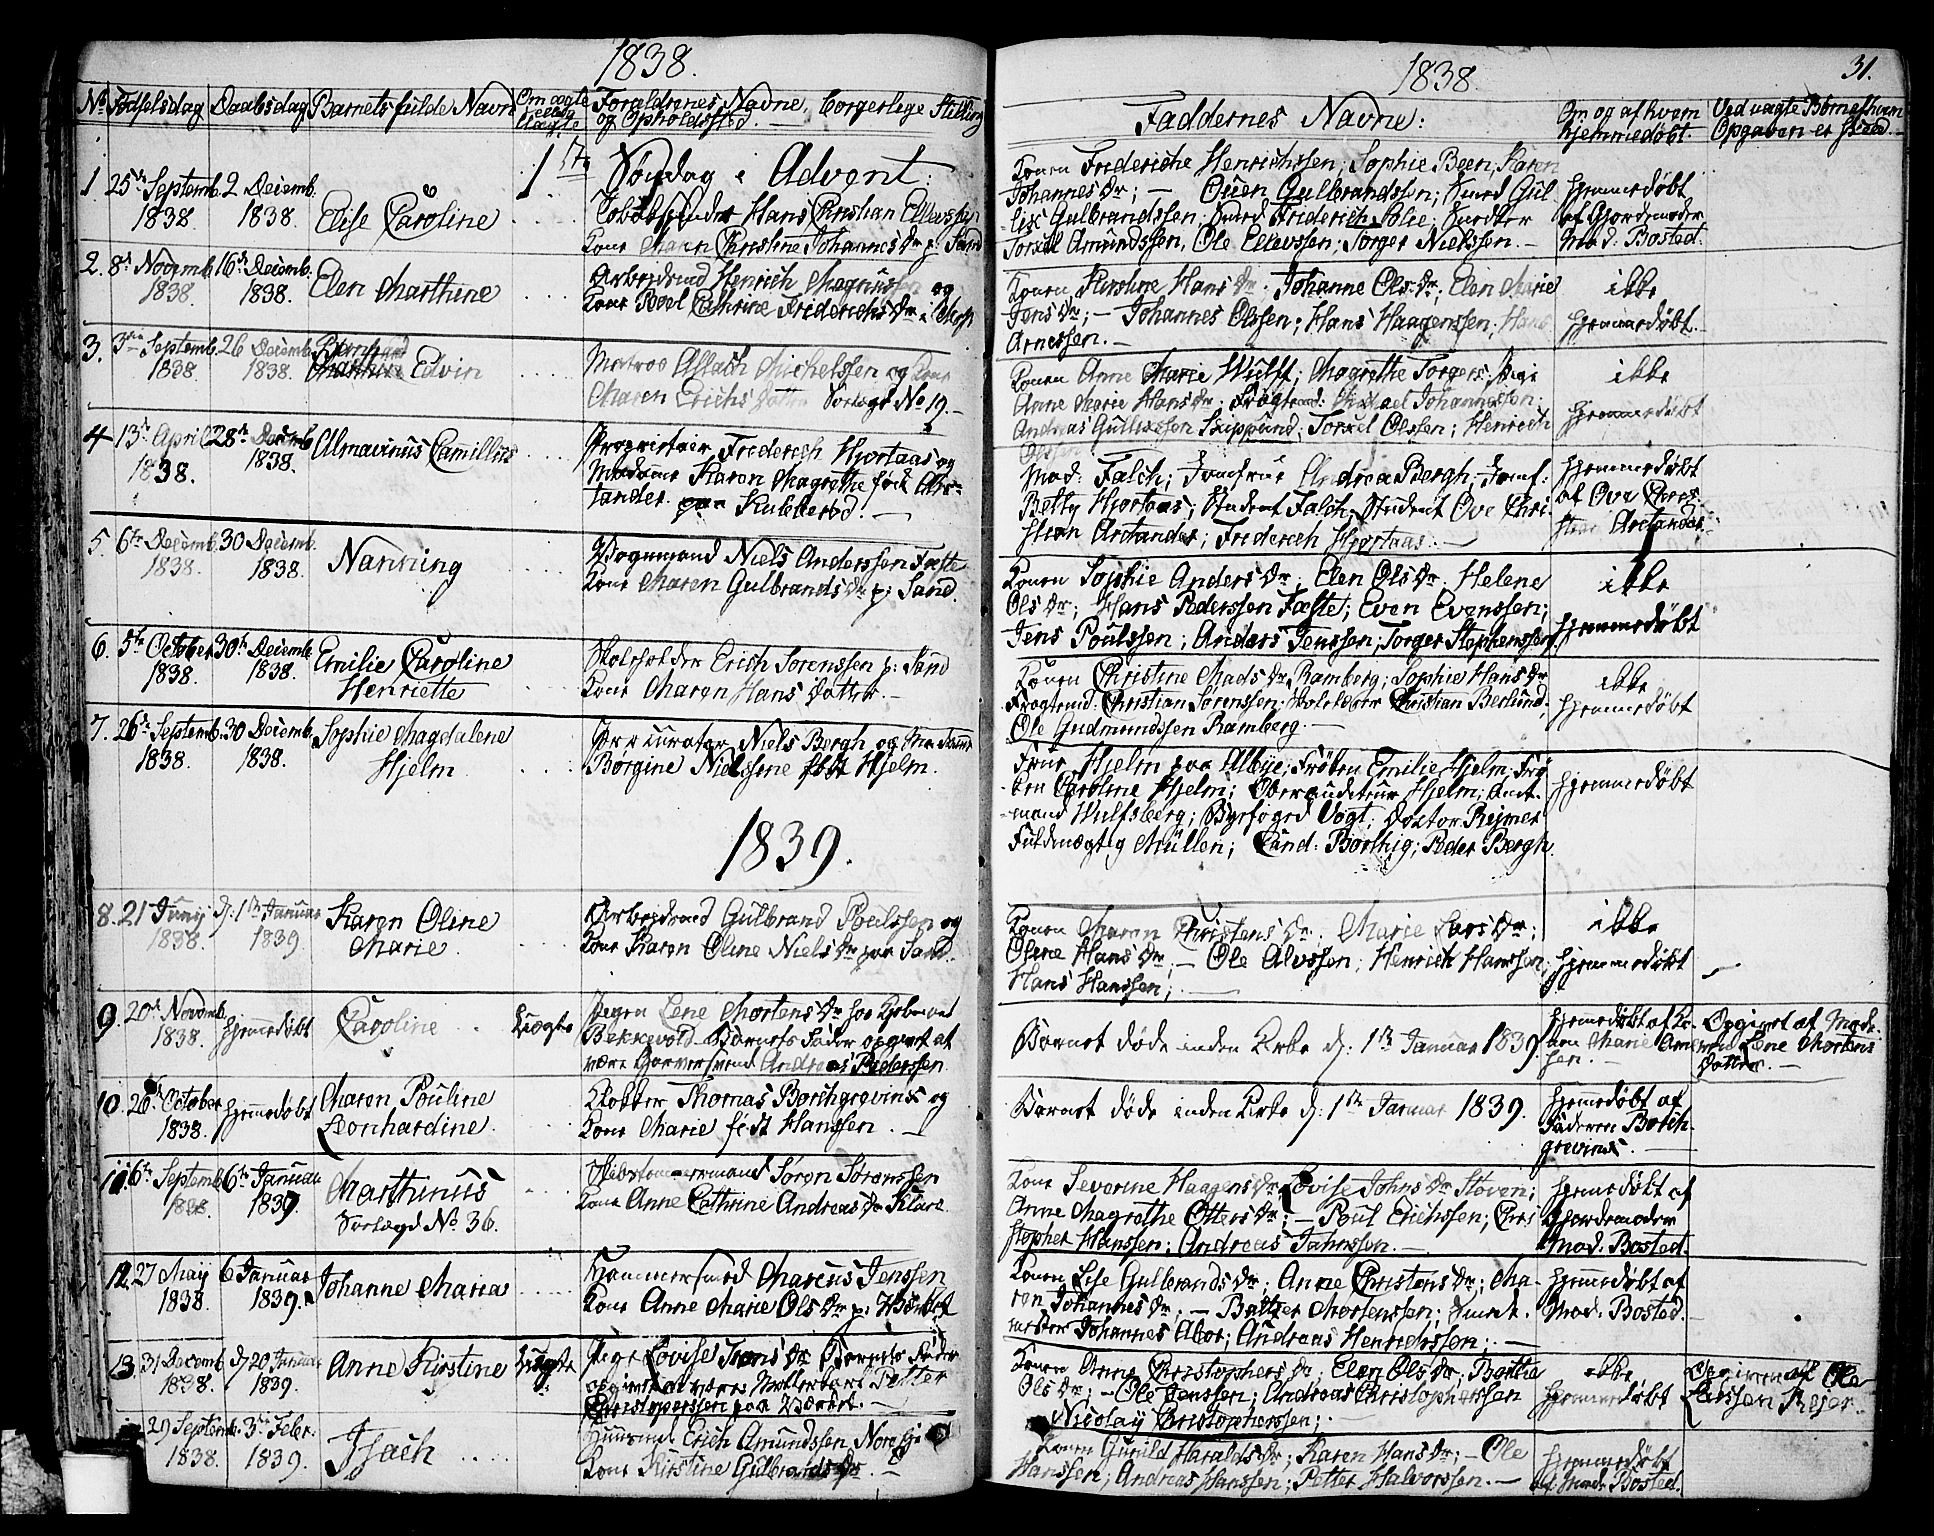 1838.
No Fødselsdag Daabsdag Barnets fulde Navn Om ægte eller Uægte Forældrenes Navne, borgerlige Stilling og Opholdssted.
1ste Søndag i Advent:
1 25de Septemb. 1838 2 Decemb. 1838. Elise Caroline
Hans Christian Ellevssen
Kone Maren Christine Johannes Dr p: Sand
2. 8de Novemb. 1838. 16de Decemb. 1838. Elen Marthine
Arbejdsmd Henrich Magnussen og
Kone Boel Cathrine Friderichs Dr i
3. 3die Septemb. 1838 26 Decemb. 1838. Bernhard Edvin
Matros Allach Michelssen og Kone
Maren Erichs Datter Sorløgd No 19.
4 13de April 1838. 28de Decemb. 1838. Almavinus Camillus
Proprietair Friderich Hjortaas og
Madame Karen Magrethe født Arc-
tander. paa Kubberød.
5 6te Decemb. 1838. 30 Decemb. 1838. Nanning
Vognmand Niels Anderssen Fæste
Kone Maren Gulbrands Dr p: Sand.
6. 5te October 1838. 30te Decemb. 1838. Emilie Caroline
Henriette
Skoleholder Erich Sørenssen p: Sand
Kone Maren Hans Datter.
7. 26de Septemb. 1838. 30 Decemb. 1838. Sophie Magdalene
Hjelm
Procurator Niels Bergh og Madame
Borgine Nielssine født Hjelm.
1839.
8. 21 Junij 1838. d: 1ste Januar 1839. Karen Oline
Marie
Arbejdsmd Gulbrand Poulssen og
Kone Karen Oline Niels Dr paa Sand.
9. 20de Novemb. 1838. hjemmedøbt Caroline Uægte
Pigen Lene Mortens Dr hos Kjøbmand
Bekkevold. Barnets Fader opgivet at
være Garversvend Andreas Pederssen
10. 26de October 1838. hjemmedøbt Maren Pouline
Leonhardine.
Klokker Thomas Borchgrevink og
Kone Marie født Hanssen.
11 6te Septemb. 1838 6te Januar 1839 Marthinus
Sorløgd No. 36.
Skibstømmermand Søren Sørenssen
Kone Anne Cathrine Andreas Dr Klare.
12. 27 May 1838. 6 Januar 1839. Johanne Maria
Tømmermand Marcus Jenssen
Kone Anne Marie Ols Dr p:
13. 31 Decemb. 1838. d: 20 Januar 1839. Anne Kirstine Uægte
Pige Lovise Jens Dr Barnets Fader
opgivet at være Petter
Christopherssen paa
29 Septemb. 1838. 3die Febr. 1839. Isach
Huusmd Erich Amundssen
Kone Kirstine Gulbrands Dr.
1838.
31.
Faddernes Navne:
Om og af hvem hjemmedøbt
Ved uægte Børn af hvem Opgaven er skeed.
Konen Frideriche Henrichssen; Sophie Been; Karen
Johannes Dr; — Ouen Gulbrandssen; Smed Gul-
Gulbrandssen; Friderich Polie;
Torkel Amundssen, Ole Ellevssen; Torger Nielssen.
hjemmedøbt
af Gjordemoder
Mad: Bosted.
Konen Kirstine Hans Dr; Johanne Ols Dr; Elen Marie
Jens Dr; — Johannes Olssen; Hans Haagenssen; Hans
Arnessen.
ikke
hjemmedøbt.
Konen Anne Marie Wulff; Magrethe Torgers; Pige
Anne Marie Hans Dr; Michael Johannessen;
Andreas Gullikssen; Torkel Olssen; Henrich
Olssen
ikke
hjemmedøbt
Mad: Falch; Jomfrue Andrea Bergh; Jomf:
Betty Hjortaas; Student Falch; Student Ove Chri-
stian Arctander; Friderich Hjortaas.
hjemmedøbt
af Ove Chri-
stian Arctander
Konen Sophie Anders Dr; Elen Ols Dr; Helene
Ols Dr; Hans Pederssen Fæste; Even Evenssen;
Jens Poulssen; Anders Jenssen; Torger Stephenssen.
ikke
hjemmedøbt
Konen Christine Mads Dr Ramberg; Sophie Hans Dr
Fragtemd: Christian Sørenssen; Skoleholder Christian Berlund;
Ole Gudmundssen Ramberg.
ikke
hjemmedøbt
Frue Hjelm paa Albye; Frøken Emilie Hjelm; Frø-
ken Caroline Hjelm; Oberauditeur Hjelm; Amt-
mand Wulfsberg; Byefoged Vogt; Doctor Rejmer
Fuldmægtig Müllen; Cand: Borthig; Peder Bergh.
hjemmedøbt
Konen Maren Christens Dr; Marie Lars Dr;
Oline Hans Dr; — Ole Alvssen; Henrich Hanssen;
Hans Hanssen;
ikke
hjemmedøbt
Barnet døde inden Kirke d: 1ste Januar 1839.
hjemmedøbt af Ko-
nen Marie
Opgivet af Mode-
ren Lene Mortens
Datter.
Barnet døde inden Kirke d: 1ste Januar 1839.
hjemmedøbt af
Faderen Borch-
grevink.
Kone Severine Haagens Dr; Lovise Johns Dr Støven;
Anne Magrethe Otters Dr; — Poul Erichssen; Chri-
stopher Hanssen; Andreas Jahnssen.
hjemmedøbt af
Gjordemoder
Mad: Bosted.
Konen Lise Gulbrands Dr; Anne Christens Dr; Ma-
ren Johannes Dr; — Baltzer Mortenssen;
Johannes Aboe; Andreas Henrichssen;
hjemmedøbt af
Mad: Bosted.
Konen Anne Christophers Dr; Elen Ols Dr; Berthe
Ols Dr; — Ole Jenssen; Andreas Christopherssen
Nicolay Christopherssen;
ikke
hjemmedøbt
Opgiven af Ole
Larssen Rejer.
Konen Gunild Haralds Dr; Karen Hans Dr; — Ole
Hanssen; Andreas Hanssen; Petter Halvorssen.
hjemmedøbt
af Mad: Bosted.